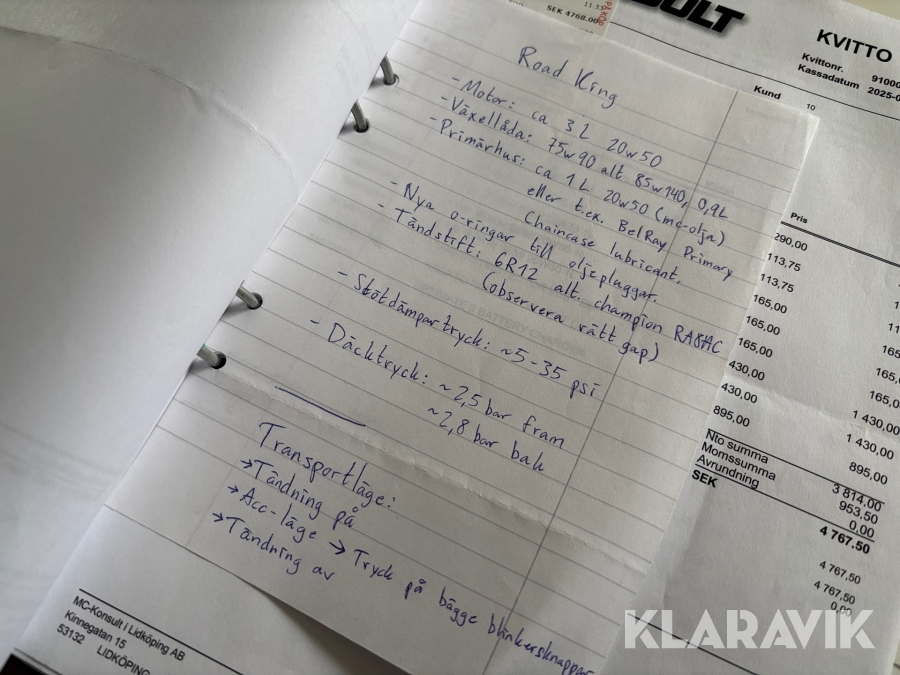 11:33
SEK 4768.00
PÅ KÖP
BOLT
KVITTO
Kvittonr.
Kassadatum 2025-0
Kund
10
Pris
290,00
113,75
113,75
165,00
165,00
165,00
430,00
430,00
895,00
165,0
165,0
1 430,00
1 430,00
895,00
Nto summa 3 814.00
Momssumma 953,50
Avrundning 0,00
SEK 4 767.50
4 767,50
4 767,50
0,00
Road King
- Motor: ca 3 L 20w50
- Växellåda: 75w90 alt 85w140, 0,9L
- Primärhus: ca 1 L 20w50 (mc-olja)
eller t.ex. BelRay Primary
Chaincase lubricant.
- Nya o-ringar till oljepluggar.
- Tändstift: 6R12 alt. champion RA8AC
(observera rätt gap)
- Stötdämpartryck: ~5-35 psi
- Däcktryck: ~2,5 bar fram
~2,8 bar bak
Transportläge:
→ Tändning på
→ Acc-läge → Tryck på bägge blinkersknappar
→ Tändning av
MC-Konsult i Lidköping AB
Kinnegatan 15
53132 LIDKÖPING
KLARAVIK